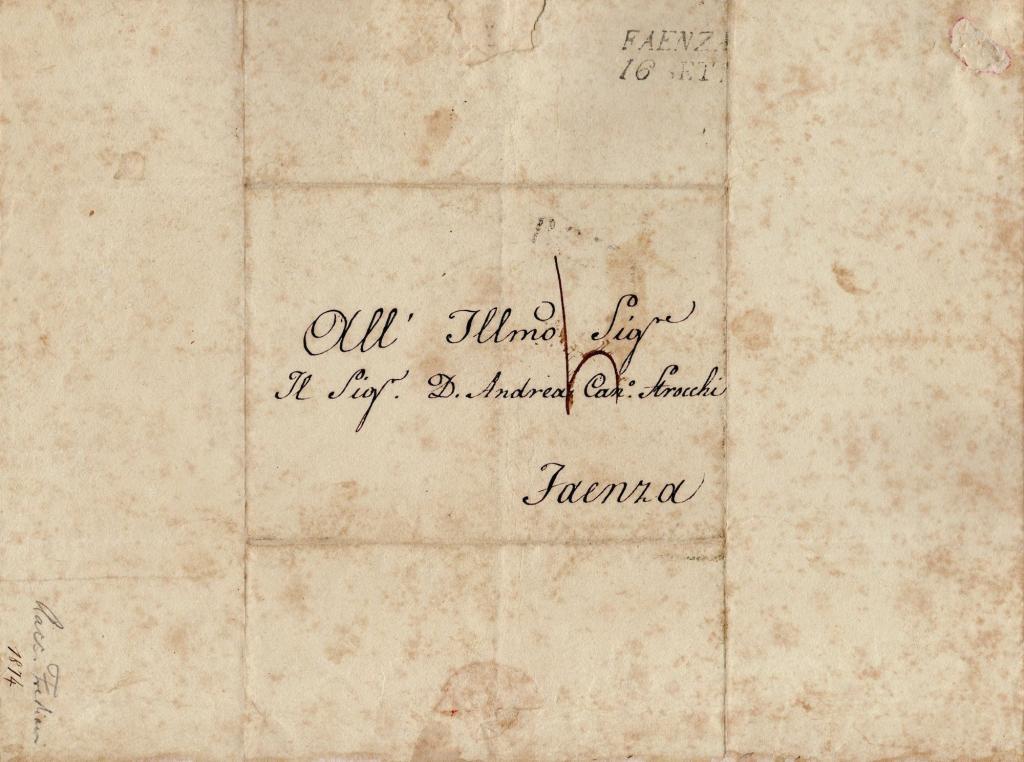 FAENZA
16 SET
All' Illmo Sigre
Il Sigr. D. Andrea Can.o Strocchi
Faenza
Racc.
1874